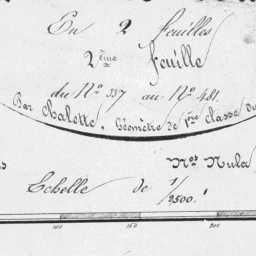 En 2 feuilles
2ème feuille
du Nº 337 au Nº 481.
Par Chalette, Géomètre de 1ère Classe du
Nos Nula
Echelle de 1/2500.
100 150 200